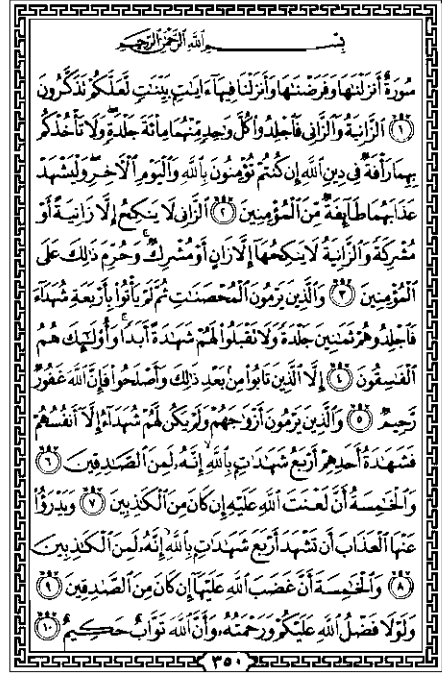 بِسْمِ اللَّهِ الرَّحْمَٰنِ الرَّحِيمِ
سُورَةٌ أَنزَلْنَٰهَا وَفَرَضْنَٰهَا وَأَنزَلْنَا فِيهَآ ءَايَٰتٍۭ بَيِّنَٰتٍ لَّعَلَّكُمْ تَذَكَّرُونَ
﴿١﴾ ٱلزَّانِيَةُ وَٱلزَّانِى فَٱجْلِدُوا۟ كُلَّ وَٰحِدٍ مِّنْهُمَا مِا۟ئَةَ جَلْدَةٍ ۖ وَلَا تَأْخُذْكُم
بِهِمَا رَأْفَةٌ فِى دِينِ ٱللَّهِ إِن كُنتُمْ تُؤْمِنُونَ بِٱللَّهِ وَٱلْيَوْمِ ٱلْـَٔاخِرِ ۖ وَلْيَشْهَدْ
عَذَابَهُمَا طَآئِفَةٌ مِّنَ ٱلْمُؤْمِنِينَ ﴿٢﴾ ٱلزَّانِى لَا يَنكِحُ إِلَّا زَانِيَةً أَوْ
مُشْرِكَةً وَٱلزَّانِيَةُ لَا يَنكِحُهَآ إِلَّا زَانٍ أَوْ مُشْرِكٌ ۚ وَحُرِّمَ ذَٰلِكَ عَلَى
ٱلْمُؤْمِنِينَ ﴿٣﴾ وَٱلَّذِينَ يَرْمُونَ ٱلْمُحْصَنَٰتِ ثُمَّ لَمْ يَأْتُوا۟ بِأَرْبَعَةِ شُهَدَآءَ
فَٱجْلِدُوهُمْ ثَمَٰنِينَ جَلْدَةً وَلَا تَقْبَلُوا۟ لَهُمْ شَهَٰدَةً أَبَدًا ۚ وَأُو۟لَٰٓئِكَ هُمُ
ٱلْفَٰسِقُونَ ﴿٤﴾ إِلَّا ٱلَّذِينَ تَابُوا۟ مِنۢ بَعْدِ ذَٰلِكَ وَأَصْلَحُوا۟ فَإِنَّ ٱللَّهَ غَفُورٌ
رَّحِيمٌ ﴿٥﴾ وَٱلَّذِينَ يَرْمُونَ أَزْوَٰجَهُمْ وَلَمْ يَكُن لَّهُمْ شُهَدَآءُ إِلَّآ أَنفُسُهُمْ
فَشَهَٰدَةُ أَحَدِهِمْ أَرْبَعُ شَهَٰدَٰتٍۭ بِٱللَّهِ ۙ إِنَّهُۥ لَمِنَ ٱلصَّٰدِقِينَ ﴿٦﴾
وَٱلْخَٰمِسَةُ أَنَّ لَعْنَتَ ٱللَّهِ عَلَيْهِ إِن كَانَ مِنَ ٱلْكَٰذِبِينَ ﴿٧﴾ وَيَدْرَؤُا۟
عَنْهَا ٱلْعَذَابَ أَن تَشْهَدَ أَرْبَعَ شَهَٰدَٰتٍۭ بِٱللَّهِ ۙ إِنَّهُۥ لَمِنَ ٱلْكَٰذِبِينَ
﴿٨﴾ وَٱلْخَٰمِسَةَ أَنَّ غَضَبَ ٱللَّهِ عَلَيْهَآ إِن كَانَ مِنَ ٱلصَّٰدِقِينَ ﴿٩﴾
وَلَوْلَا فَضْلُ ٱللَّهِ عَلَيْكُمْ وَرَحْمَتُهُۥ وَأَنَّ ٱللَّهَ تَوَّابٌ حَكِيمٌ ﴿١٠﴾
٣٥٠